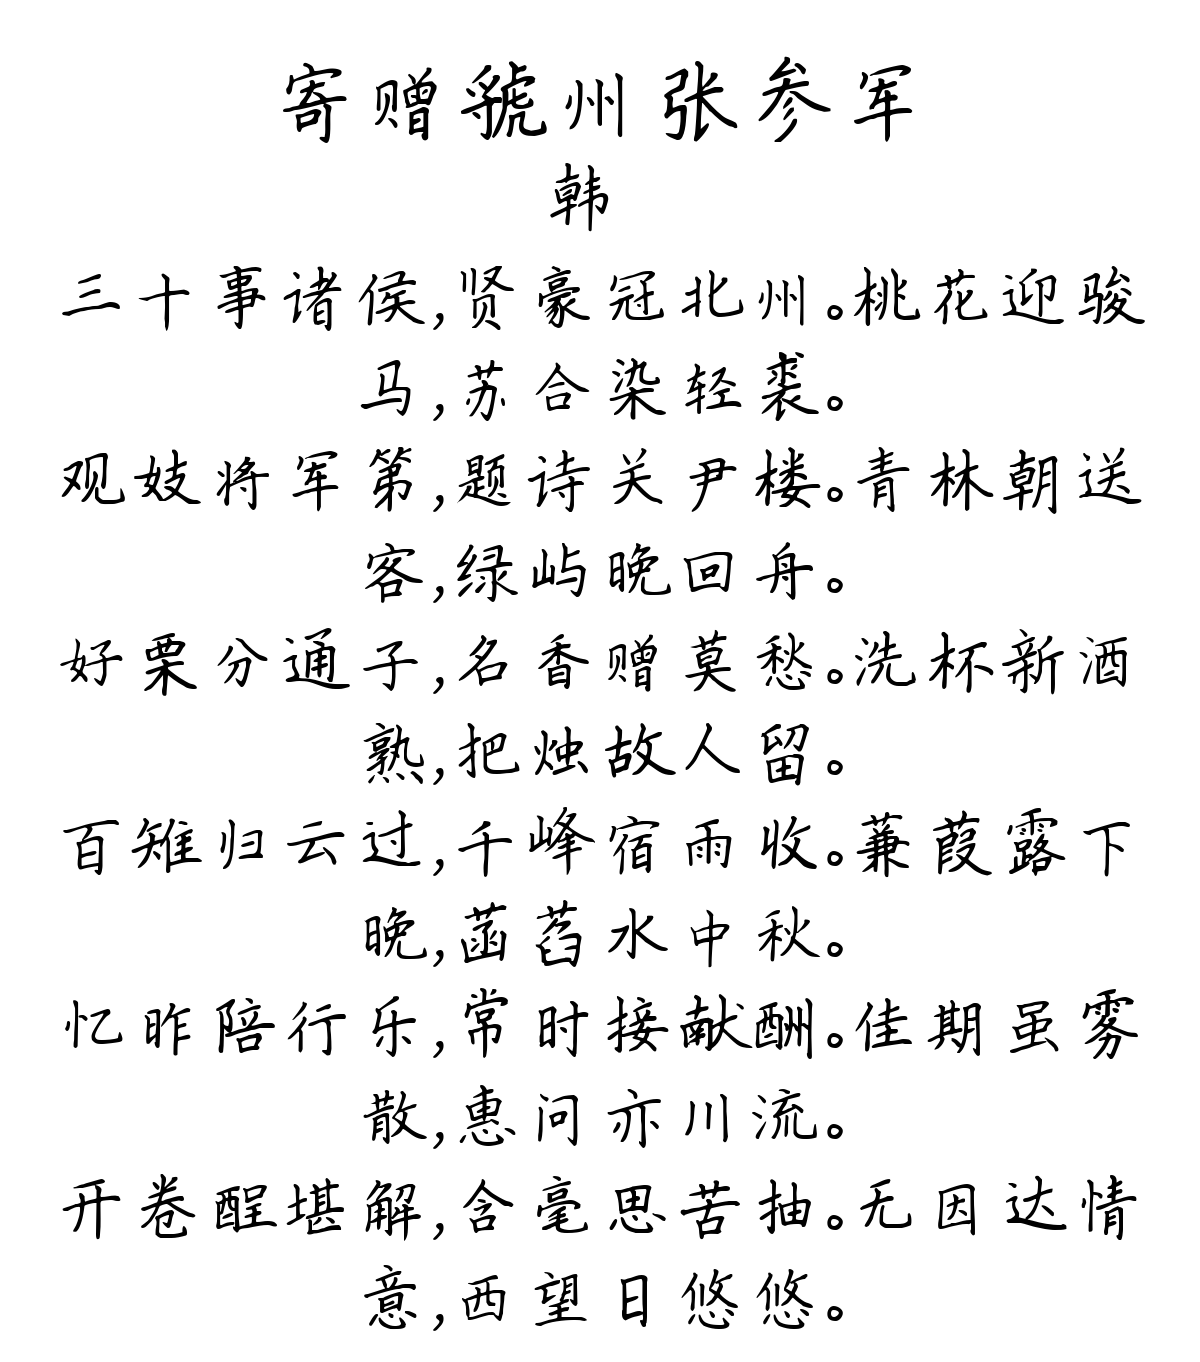 寄赠虢州张参军
韩
三十事诸侯,贤豪冠北州。桃花迎骏
马,苏合染轻裘。
观妓将军第,题诗关尹楼。青林朝送
客,绿屿晚回舟。
好栗分通子,名香赠莫愁。洗杯新酒
熟,把烛故人留。
百雉归云过,千峰宿雨收。蒹葭露下
晚,菡萏水中秋。
忆昨陪行乐,常时接献酬。佳期虽雾
散,惠问亦川流。
开卷酲堪解,含毫思苦抽。无因达情
意,西望日悠悠。